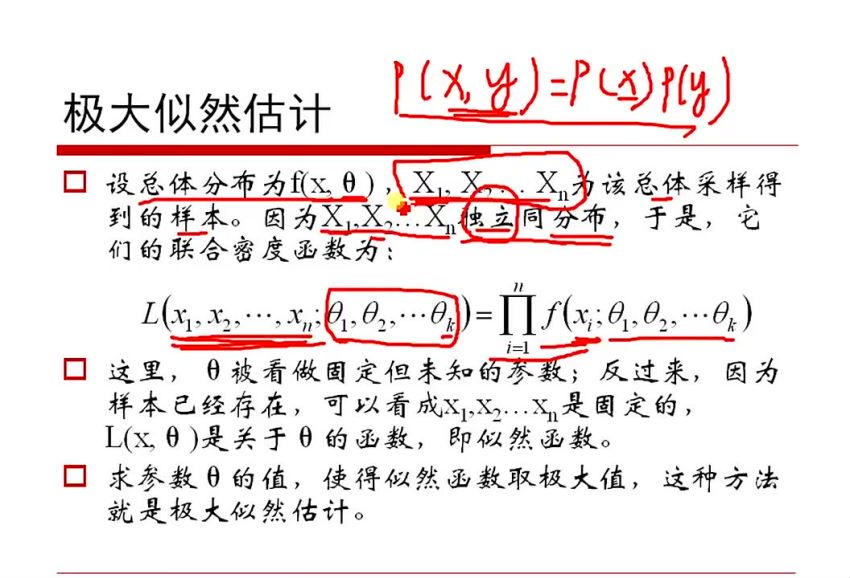 P(x,y)=P(x)P(y)
极大似然估计
设总体分布为f(x,θ),X₁,X₂…Xₙ为该总体采样得
到的样本。因为X₁,X₂…Xₙ独立同分布,于是,它
们的联合密度函数为:
L(x₁,x₂,⋯,xₙ;θ₁,θ₂,⋯θₖ)=∏ⁿᵢ₌₁f(xᵢ;θ₁,θ₂,⋯θₖ)
这里,θ被看做固定但未知的参数;反过来,因为
样本已经存在,可以看成x₁,x₂…xₙ是固定的,
L(x,θ)是关于θ的函数,即似然函数。
求参数θ的值,使得似然函数取极大值,这种方法
就是极大似然估计。